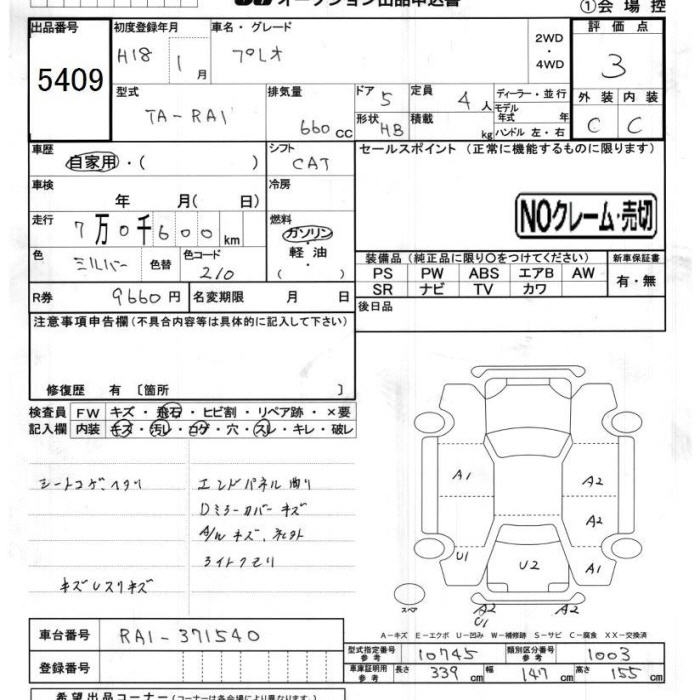 オークション出品申込書
①会場控
出品番号 初度登録年月 車名・グレード 評価点
5409 H18 1月 プレオ 2WD・4WD 3
型式 排気量 ドア 5 定員 4人 ディーラー・並行 外装 内装
TA-RA1 660cc 形状 HB 積載 kg モデル年式 年 ハンドル 左・右 C C
車歴 シフト セールスポイント (正常に機能するものに限ります)
自家用・( ) CAT
車検 冷房
年 月( 日)
NOクレーム・売切
走行 燃料
7万0千600km ガソリン・軽油・( )
色 シルバー 色替 色コード 210
装備品 (純正品に限り○をつけてください) 新車保証書
PS PW ABS エアB AW 有・無
SR ナビ TV カワ
R券 9660円 名変期限 月 日
後日品
注意事項申告欄 (不具合内容等は具体的に記入して下さい)
修復歴 有 〔箇所 〕
検査員 FW キズ・飛石・ヒビ割・リペア跡・×要
記入欄 内装 キズ・汚レ・コゲ・穴・スレ・キレ・破レ
シートコゲ、ヘタリ エンドパネル曲り
Dミラーカバーキズ
A/W キズ、
ライトクモリ
キズ レスリキズ
A1 A2
A2
U1 U2 A1
スペア A2 A2
U1
A-キズ E-エクボ U-凹み W-補修跡 S-サビ C-腐食 XX-交換済
車台番号 RA1-371540
型式指定番号 参考 10745 類別区分番号 参考 1003
登録番号
車庫証明用 参考 長さ 339cm 幅 147cm 高さ 155cm
希望出品コーナー (コーナーは各会場により異なります。)